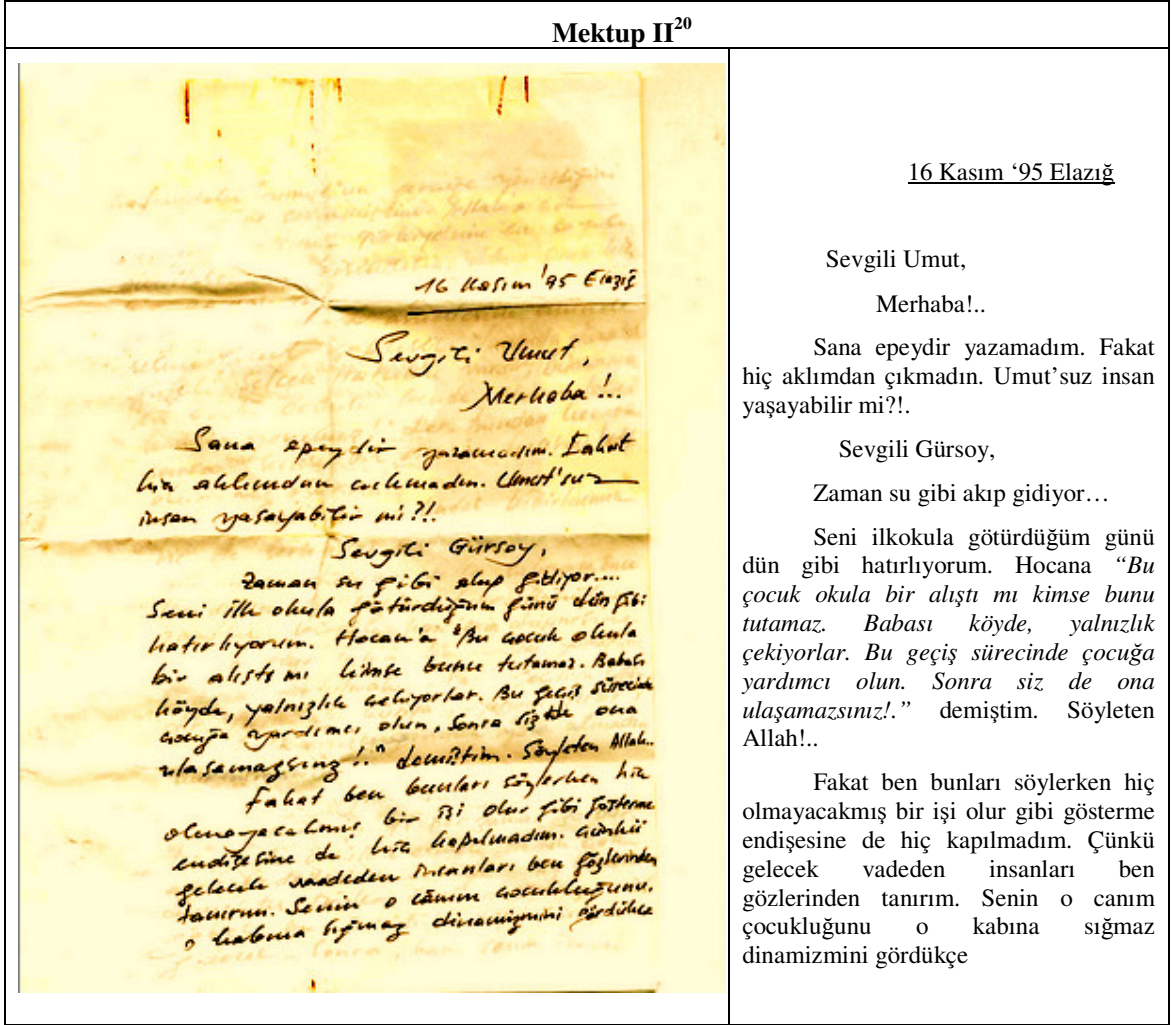 Mektup II20
16 Kasım '95 Elazığ
Sevgili Umut,
Merhaba!..
Sana epeydir yazamadım. Fakat
hiç aklımdan çıkmadın. Umut'suz
insan yaşayabilir mi?!.
Sevgili Gürsoy,
Zaman su gibi akıp gidiyor....
Seni ilk okula götürdüğüm günü dün gibi
hatırlıyorum. Hocan'a "Bu çocuk okula
bir alıştı mı kimse bunu tutamaz. Babası
köyde, yalnızlık çekiyorlar. Bu geçiş sürecinde
çocuğa yardımcı olun. Sonra siz de ona
ulaşamazsınız!.." demiştim. Söyleten Allah..
Fakat ben bunları söylerken hiç
olmayacakmış bir işi olur gibi gösterme
endişesine de hiç kapılmadım. Çünkü
gelecek vaadeden insanları ben gözlerinden
tanırım. Senin o cânım çocukluğunu,
o kabına sığmaz dinamizmini gördükçe
16 Kasım ‘95 Elazığ
Sevgili Umut,
Merhaba!..
Sana epeydir yazamadım. Fakat
hiç aklımdan çıkmadın. Umut’suz insan
yaşayabilir mi?!.
Sevgili Gürsoy,
Zaman su gibi akıp gidiyor…
Seni ilkokula götürdüğüm günü
dün gibi hatırlıyorum. Hocana “Bu
çocuk okula bir alıştı mı kimse bunu
tutamaz. Babası köyde, yalnızlık
çekiyorlar. Bu geçiş sürecinde çocuğa
yardımcı olun. Sonra siz de ona
ulaşamazsınız!.” demiştim. Söyleten
Allah!..
Fakat ben bunları söylerken hiç
olmayacakmış bir işi olur gibi gösterme
endişesine de hiç kapılmadım. Çünkü
gelecek vadeden insanları ben
gözlerinden tanırım. Senin o canım
çocukluğunu o kabına sığmaz
dinamizmini gördükçe